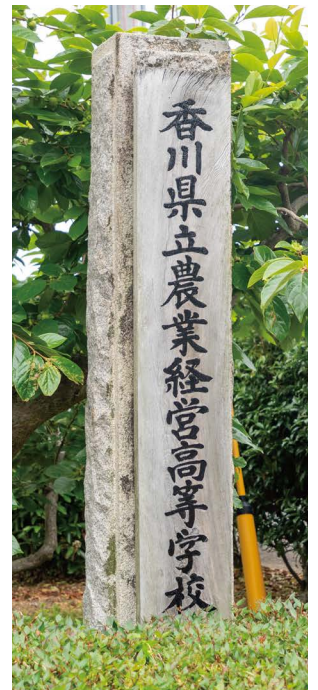 香川県立農業経営高等学校